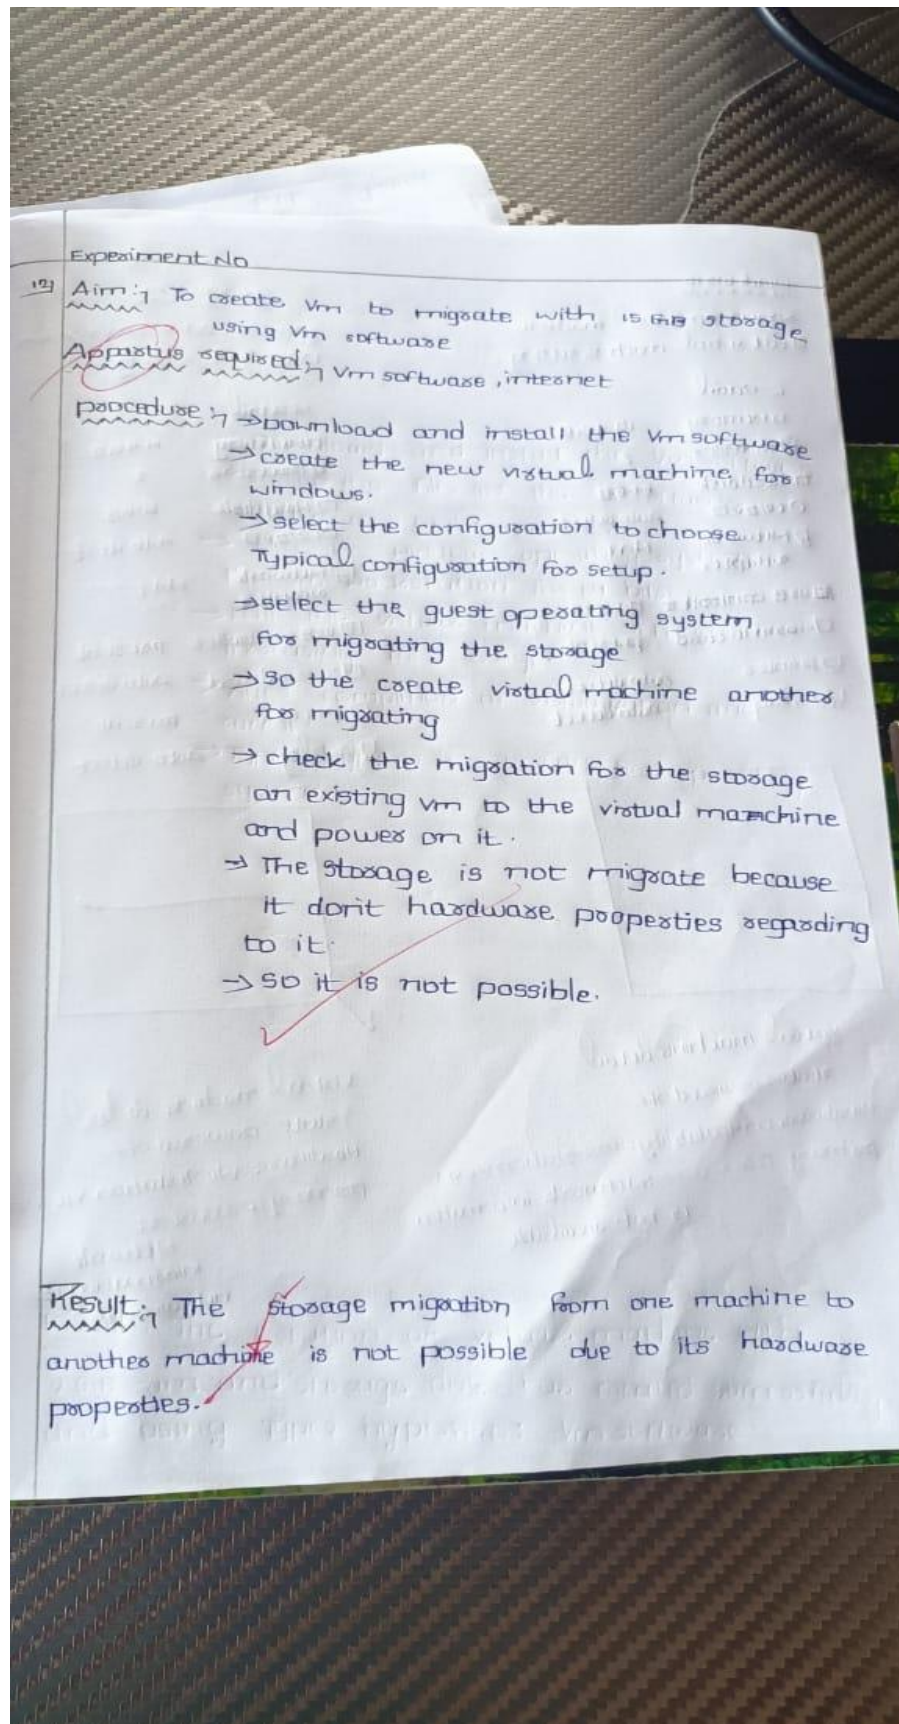 Experiment No
12) Aim:- To create Vm to migrate with 15 GB storage
using Vm software
Appartus required:- Vm software, internet
procedure:- →Download and install the Vm software
→create the new virtual machine for
windows.
→select the configuration to choose
Typical configuration for setup.
→select the guest operating system
for migrating the storage
→so the create virtual machine another
for migrating
→check the migration for the storage
an existing vm to the virtual machine
and power on it.
→ The storage is not migrate because
it don't hardware properties regarding
to it.
→ so it is not possible.
Result:- The storage migration from one machine to
another machine is not possible due to its hardware
properties.